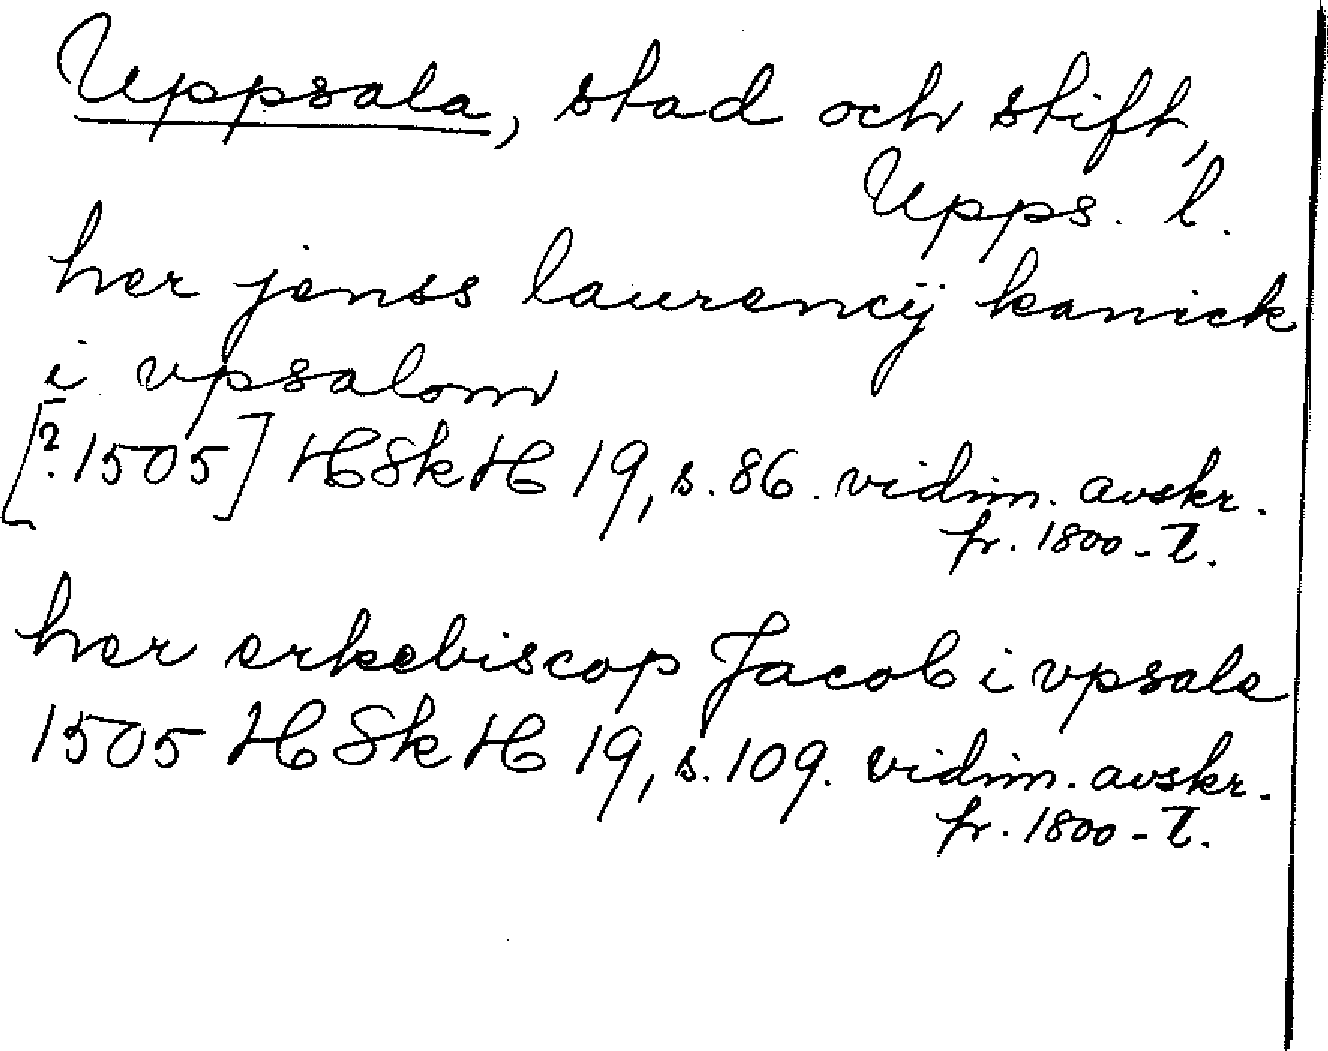 Uppsala, stad och stift,
Upps. l.
her jenss laurencij kanick
i vpsalom
[? 1505] HSkH 19, s. 86. vidim. avskr.
fr. 1800-t.
her erkebiscop Jacob i vpsale
1505 HSkH 19, s. 109. vidim. avskr.
fr. 1800-t.